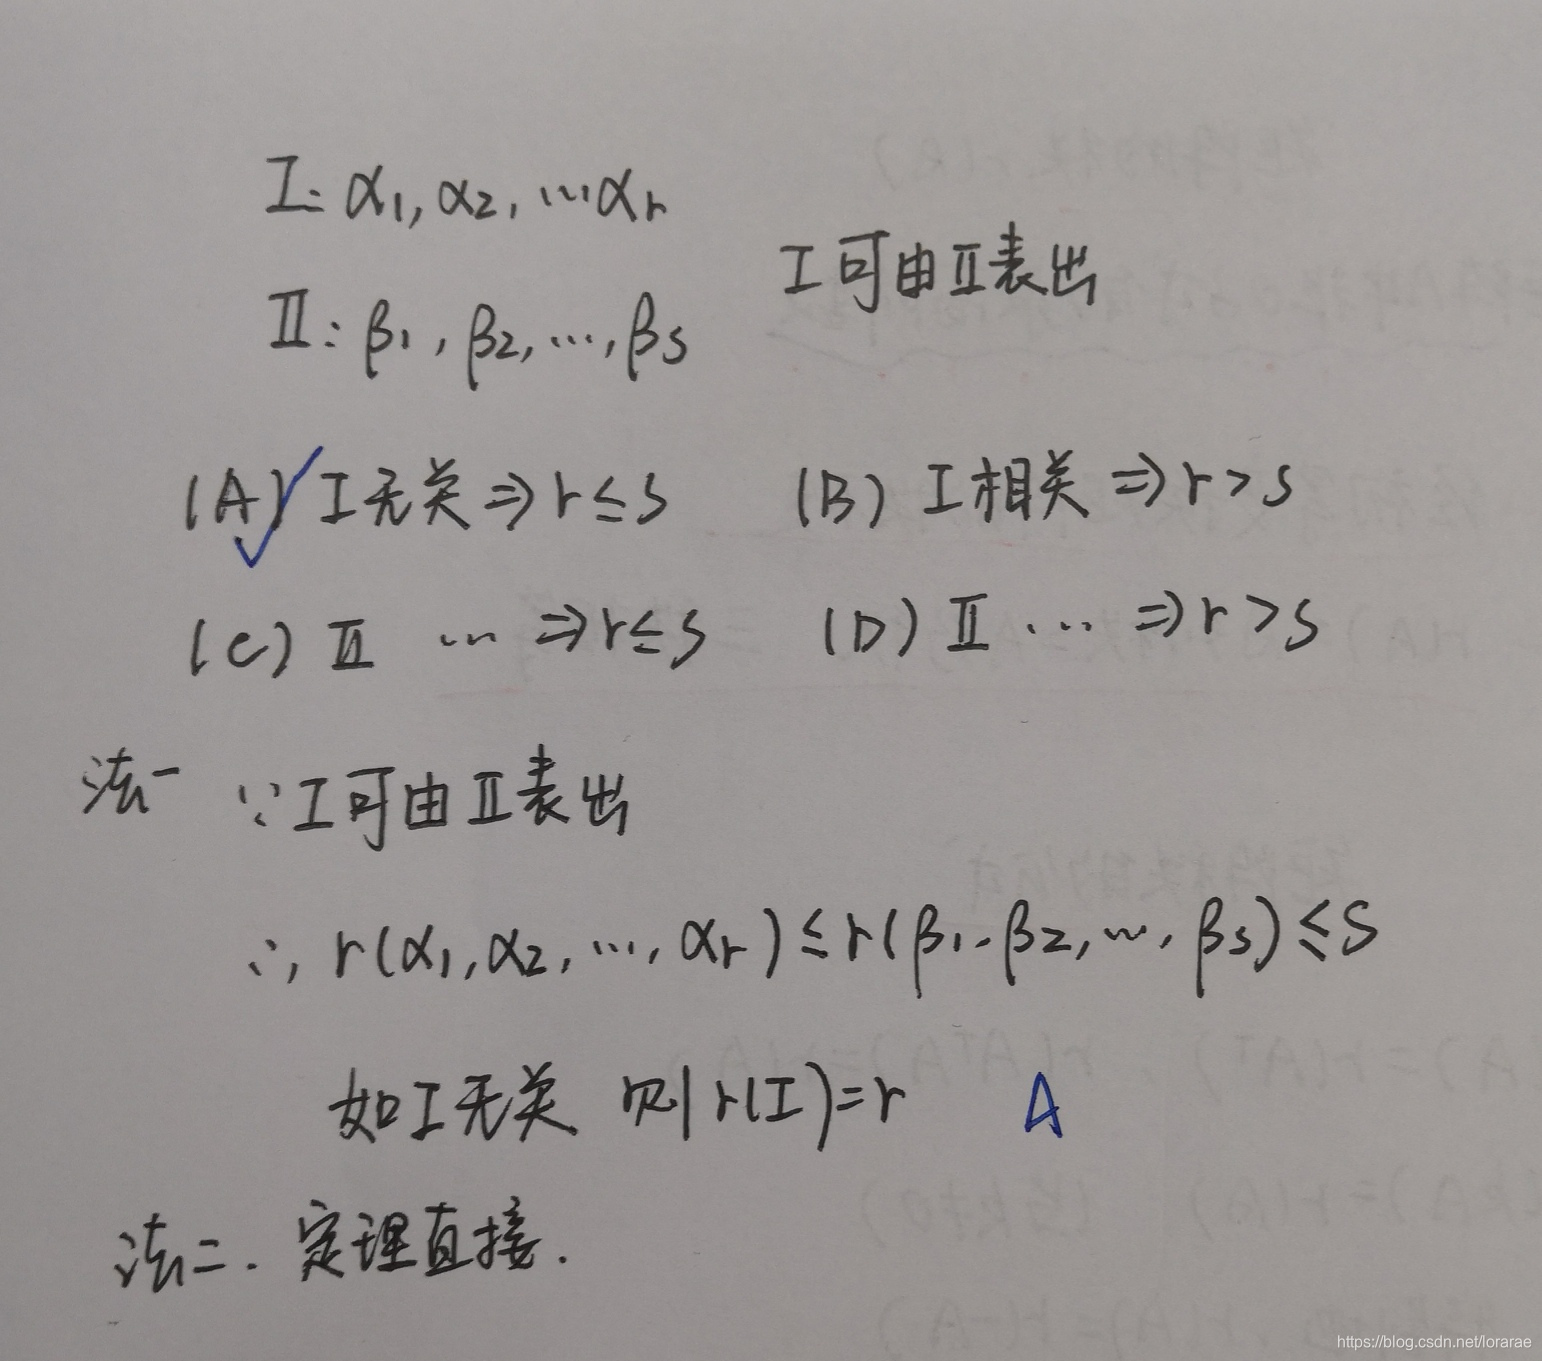 I: α₁, α₂, …αᵣ
I可由Ⅱ表出
Ⅱ: β₁, β₂, …, βs
(A)✓ I无关 ⇒ r ≤ s (B) I相关 ⇒ r > s
(C) Ⅱ … ⇒ r ≤ s (D) Ⅱ … ⇒ r > s
法一 ∵ I可由Ⅱ表出
∴ r(α₁, α₂, …, αᵣ) ≤ r(β₁, β₂, …, βs) ≤ s
如I无关 则 r(I)=r A
法二. 定理直接.
https://blog.csdn.net/lorarae